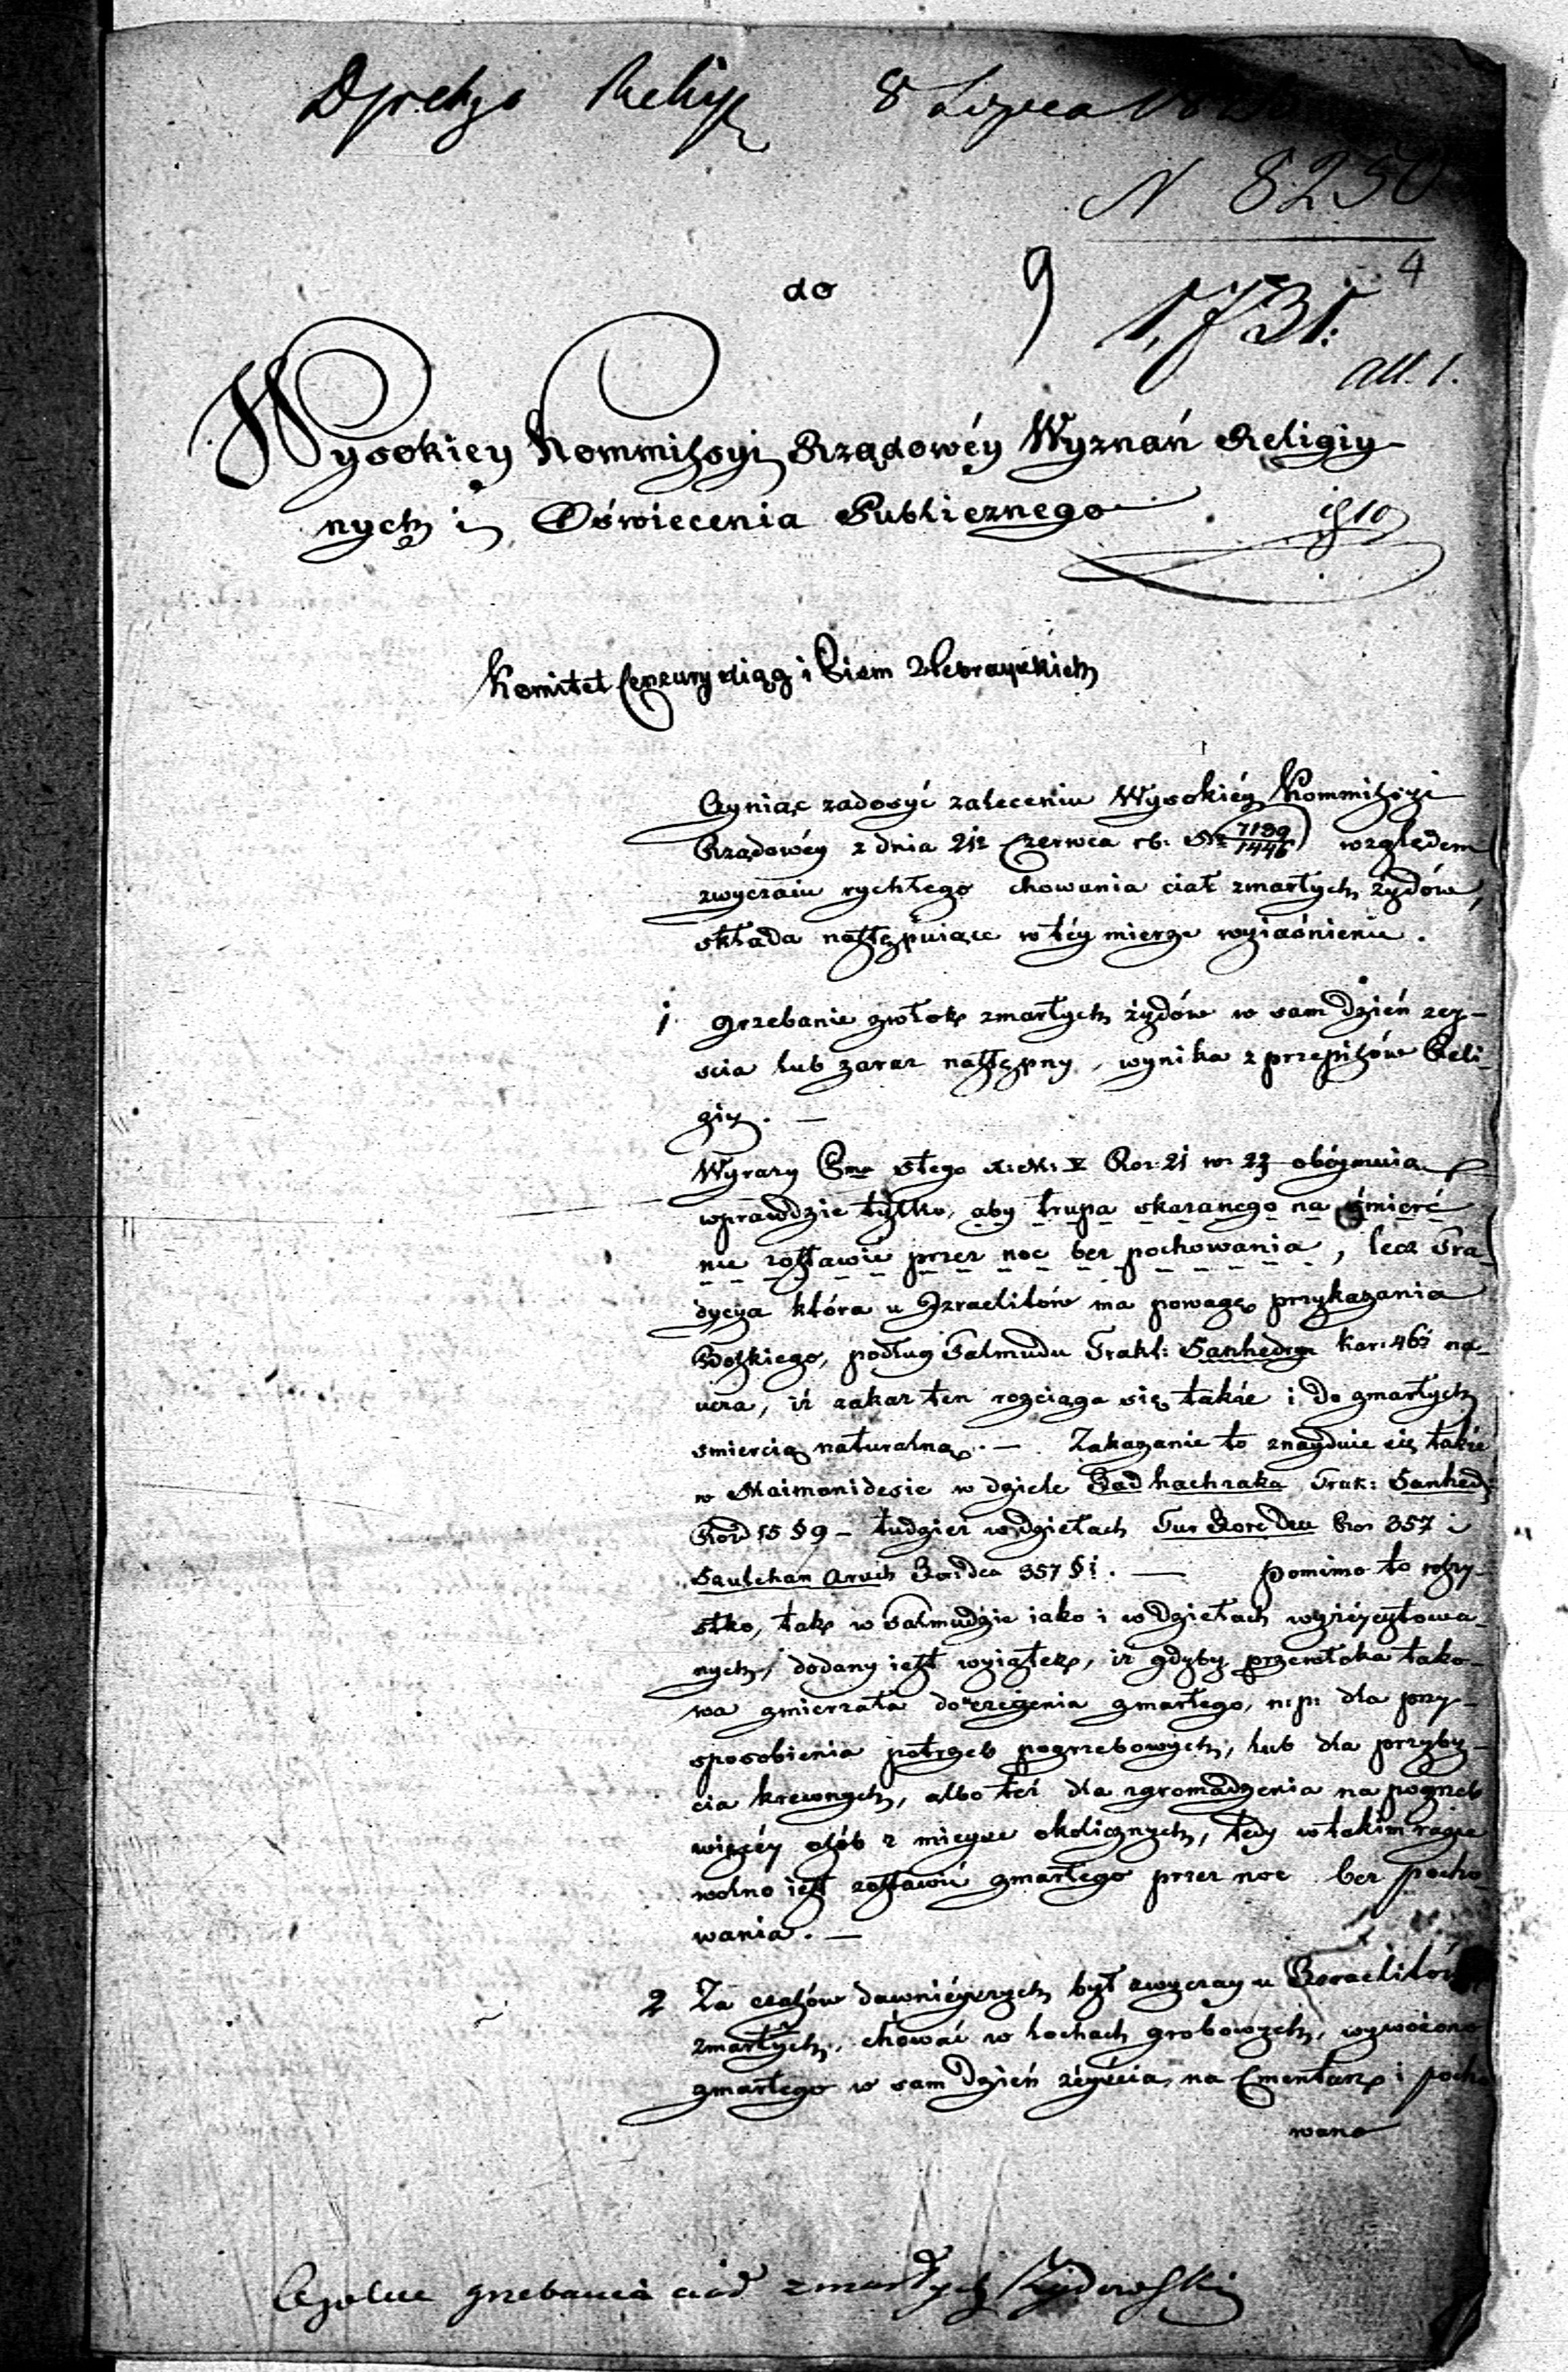 8 Lipca
N 8250
4
do
9
1,731.
All. 1.
Wysokiey Kommissyi Rządowéy Wyznań Religiy-
nych i Oświecenia Publicznego
Komitet Cenzury Xiąg i Pism Hebrayskich
Czyniąc zadosyć zaleceniu Wysokiéy Kommissyi
Rządowéy z dnia 21 Czerwca rb. Nr 7139/1446 względem
zwyczaiu rychłego chowania ciał zmarłych żydów,
składa następuiące w téy mierze wyiaśnienie.
1 grzebanie zwłok zmarłych żydów w sam dzień zey-
scia lub zaraz następny, wynika z przepisów Reli-
giy. —
Wyrazy Pma Stego X: M: V Roz: 21 w: 23 obéymuią
wprawdzie tylko, aby trupa skazanego na śmierć
nie zostawić przez noc bez pochowania, lecz Tra-
dycya która u Izraelitów ma powagę przykazania
Boskiego, podług Talmudu Trakt: Sanhedryn kar: 46 na-
ucza, iż zakaz ten rozciąga się także i do zmarłych
smiercią naturalną. — Zakazanie to znayduie się także
w Maimonidesie w dziele Jad hachzaka Trak: Sanhed:
Rozd 15 § 9 — tudzież w dziełach Tur Jore Dea Roz 357 i
Saulchan Aruch Jor: dea 357 § 1. — Pomimo to wszy-
stko, tak w Talmudzie iako i w dziełach wyżéy cytowa-
nych, dodany iest wyiątek, iż gdyby przewłoka tako-
wa zmierzała do uczczenia zmarłego, n: p: dla przy-
sposobienia potrzeb pogrzebowych, lub dla przyby-
cia krewnych, albo też dla zgromadzenia na pogrzeb
więcéy osób z mieysc okolicznych, tedy w takim razie
wolno iest zostawić zmarłego przez noc bez pocho-
wania. —
2 Za czasów dawniéyszych był zwyczay u Izraelitów
zmarłych, chować w lochach grobowych, wywożono
zmarłego w sam dzień zéyścia na Cmentarz i pocho
wano
grzebania ciał zmarłych Żydowskich